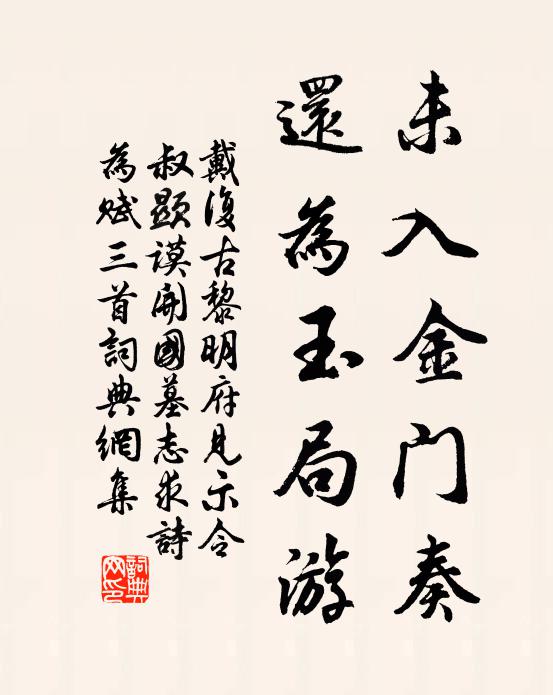 未入金门奏
還為玉局游
戴復古黎明府見示令
叔顕謨開國墓志求詩
為賦三首詞典網集
詞典
网印